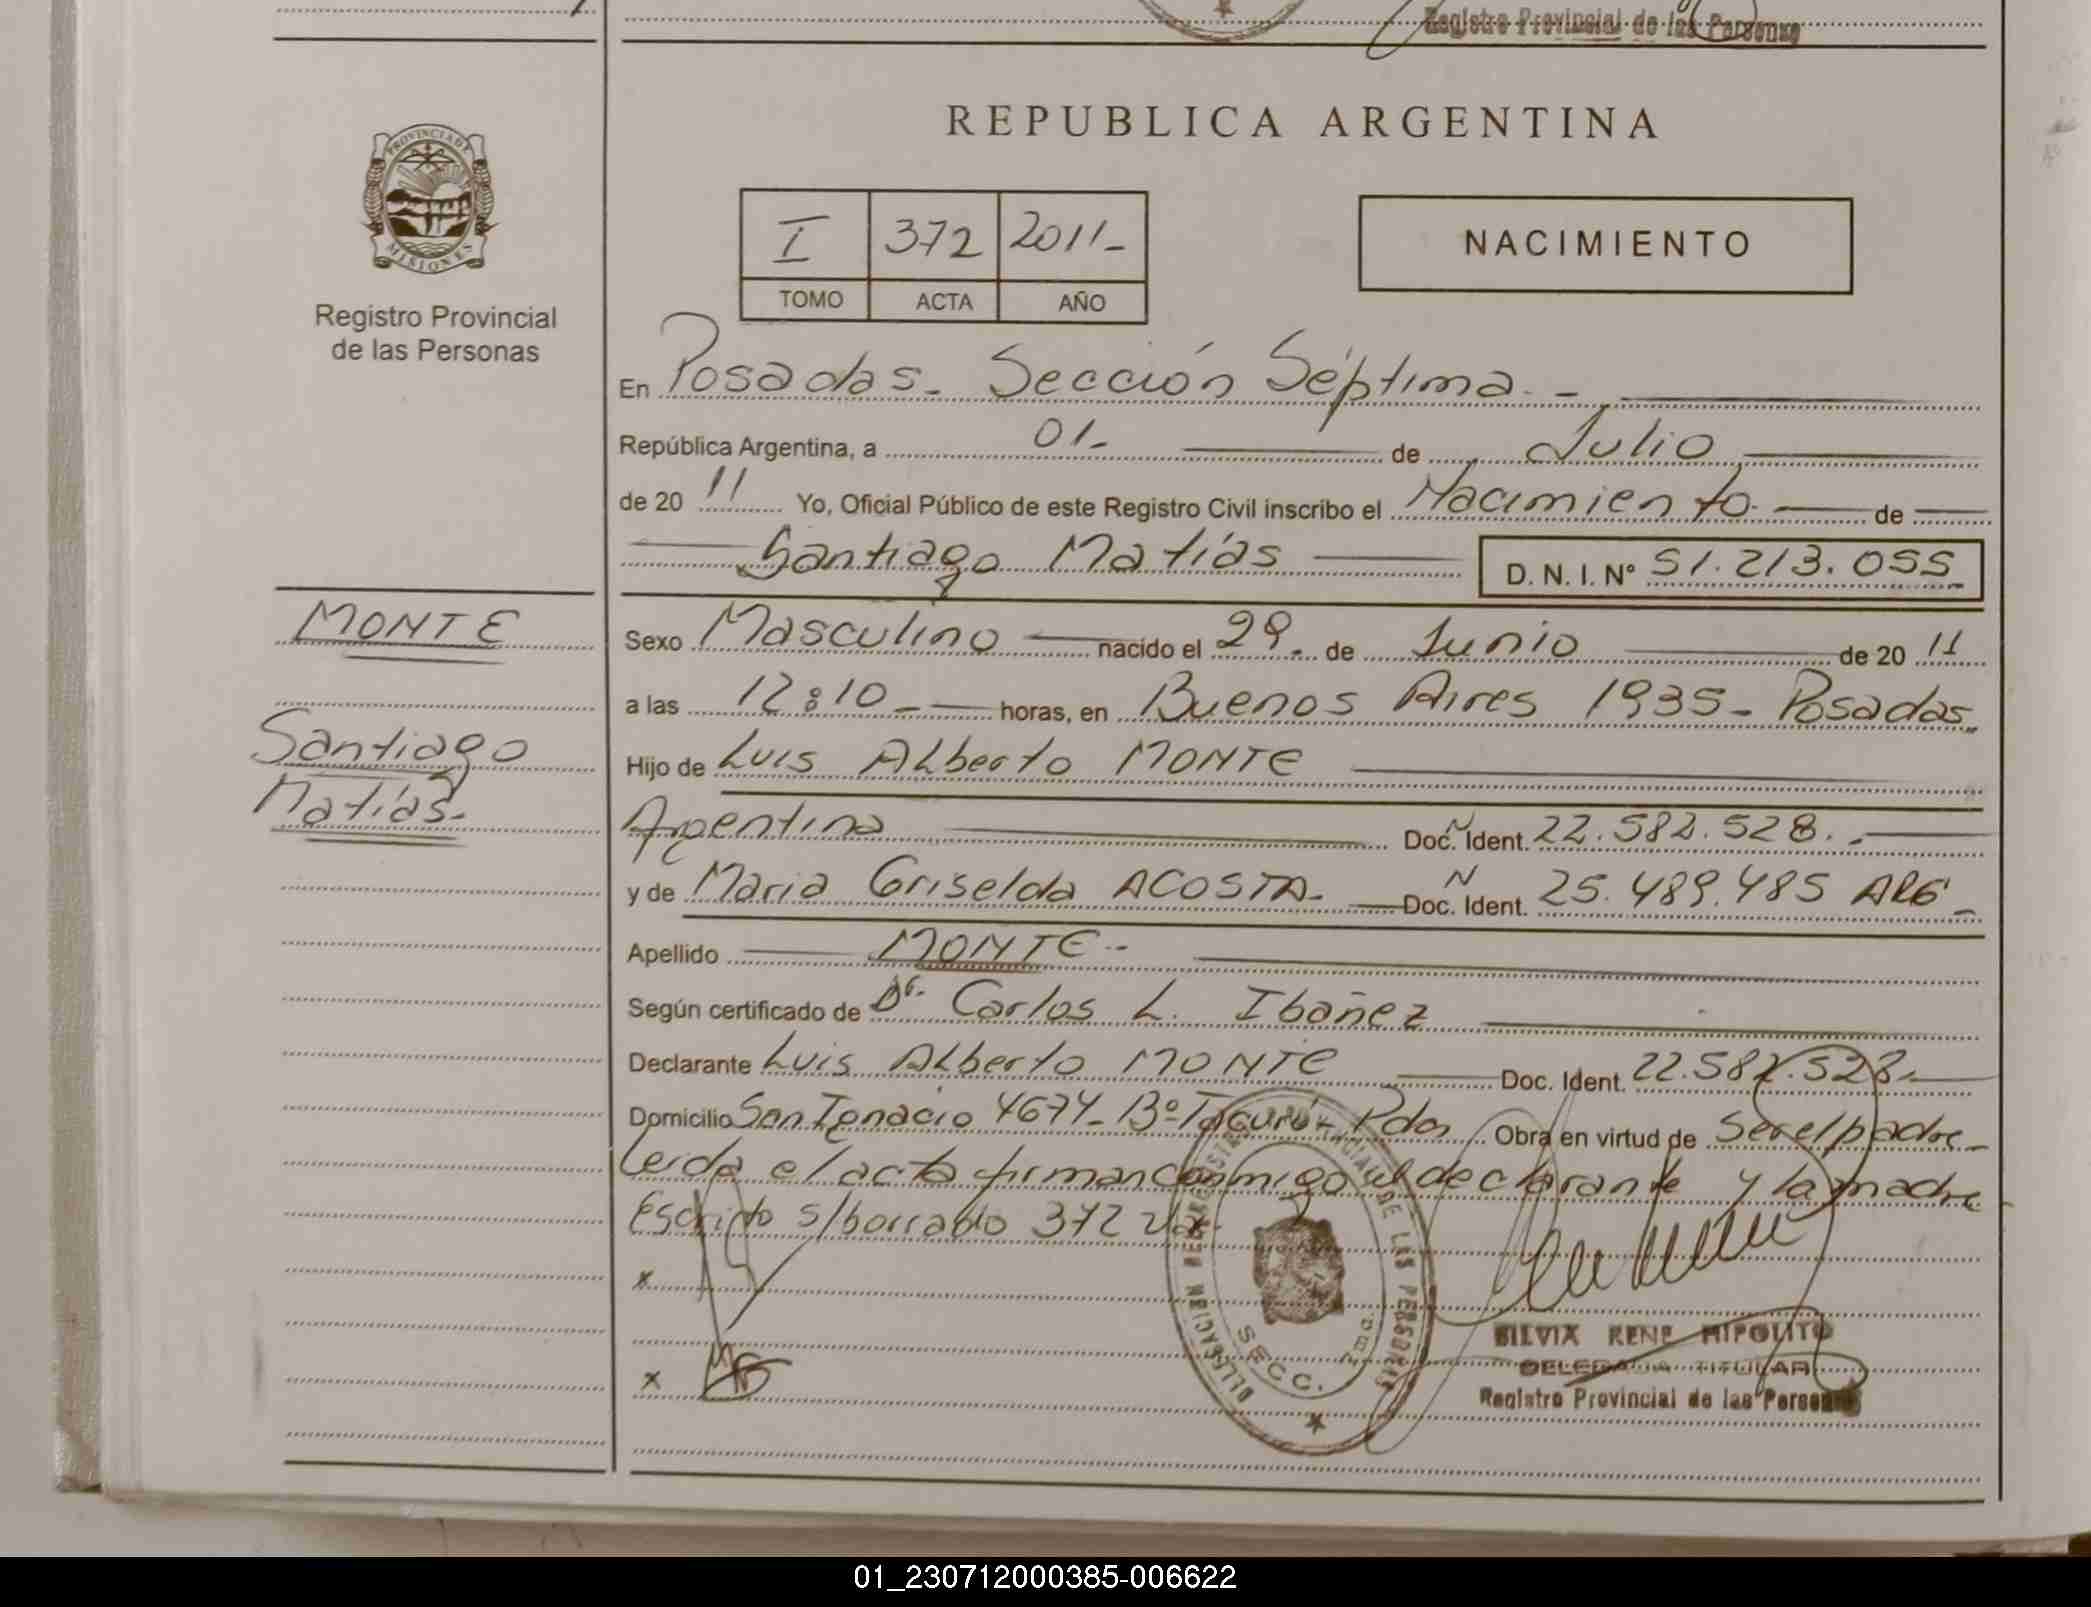 Registro Provincial de las Personas
PROVINCIA DE
MISIONES
Registro Provincial
de las Personas
REPUBLICA ARGENTINA
I 372 2011-
TOMO ACTA AÑO
NACIMIENTO
En Posadas. Sección Séptima. -
República Argentina, a 01- de Julio
de 20 11 Yo, Oficial Público de este Registro Civil inscribo el Nacimiento. de
Santiago Matías D. N. I. N° 51.213.055
MONTE
Santiago
Matías.
Sexo Masculino nacido el 29. de Junio de 20 11
a las 12:10 - horas, en Buenos Aires 1935 - Posadas
Hijo de Luis Alberto MONTE
Argentina Doc. Ident. N 22.582.528. -
y de Maria Griselda ACOSTA- Doc. Ident. N 25.489.485 ARG -
Apellido MONTE -
Según certificado de Dr. Carlos L. Ibañez
Declarante Luis Alberto MONTE Doc. Ident. 22.582.528.
Domicilio San Ignacio 4674- Bº Tacurú- Pdas Obra en virtud de Ser el padre-
Leida el acta firman conmigo el declarante y la madre
Escrito s/borrado 372 Vale
x
x
DELEGACION REGISTRO PROVINCIAL DE LAS PERSONAS
SECC. 7ma.
SILVIA RENE HIPOLITO
DELEGADA TITULAR
Registro Provincial de las Personas
01_230712000385-006622